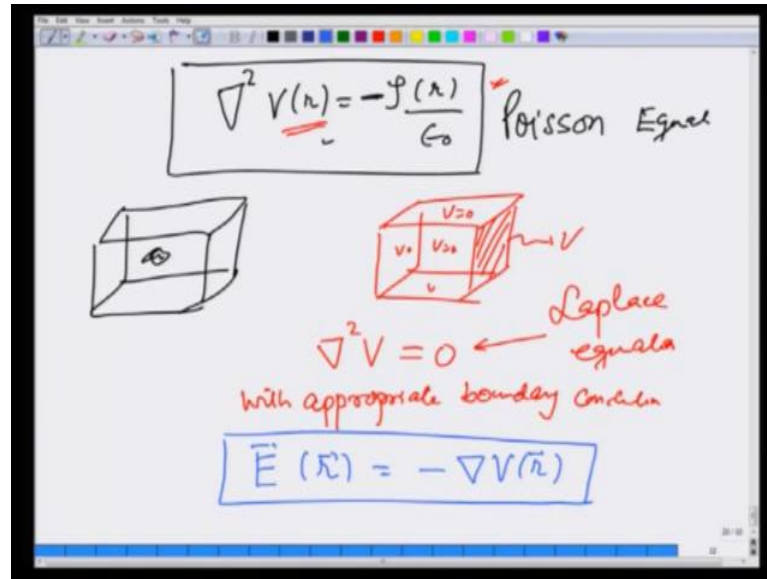 File Edit View Insert Actions Tools Help
∇² V(r) = -ρ(r)/ϵ₀
Poisson Equa
V=0
V=0
V
∇²V = 0 ← Laplace
equation
with appropriate boundary condition
E⃗ (r⃗) = - ∇V(r⃗)